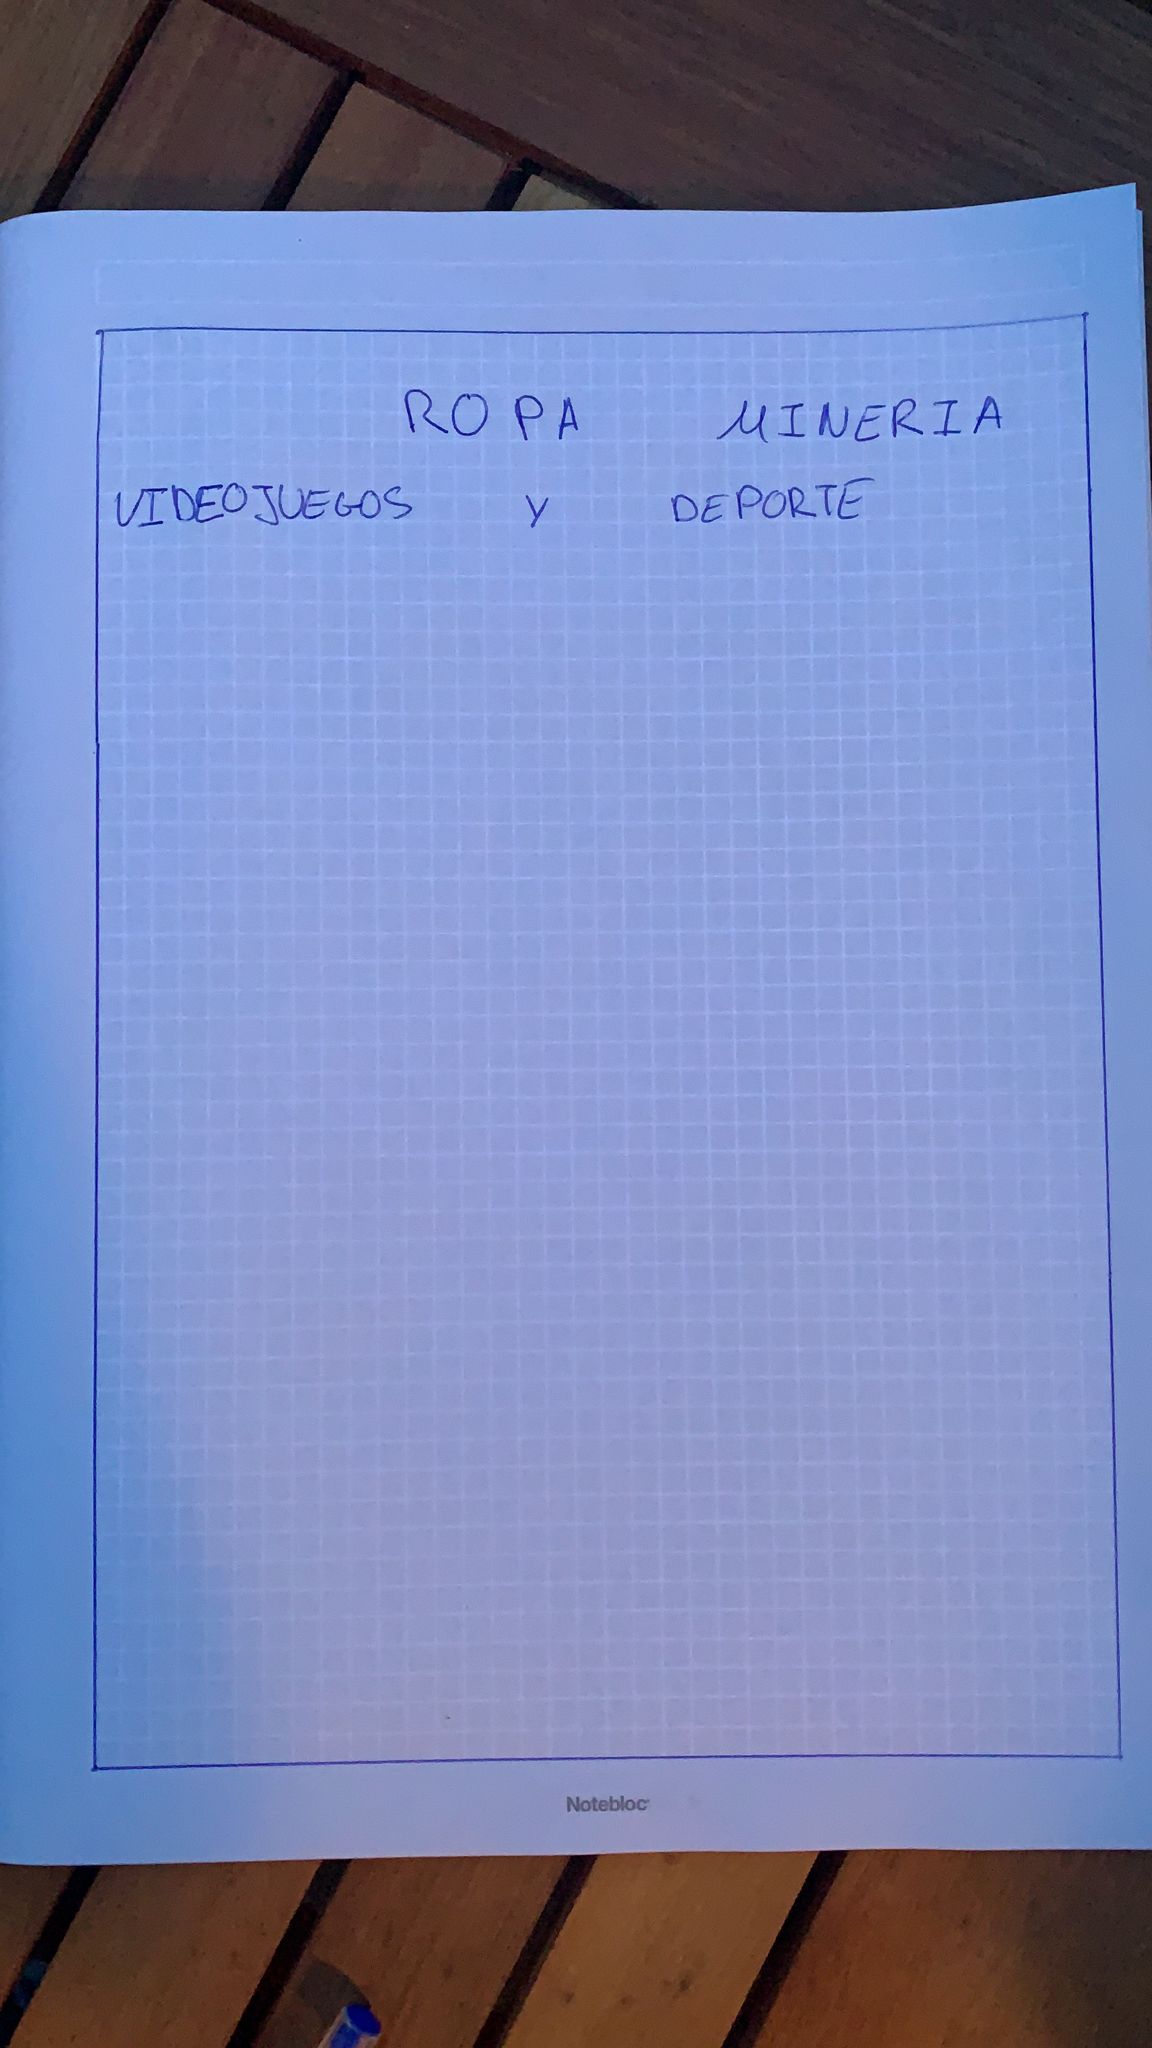 ROPA MINERIA
VIDEOJUEGOS Y DEPORTE
Notebloc